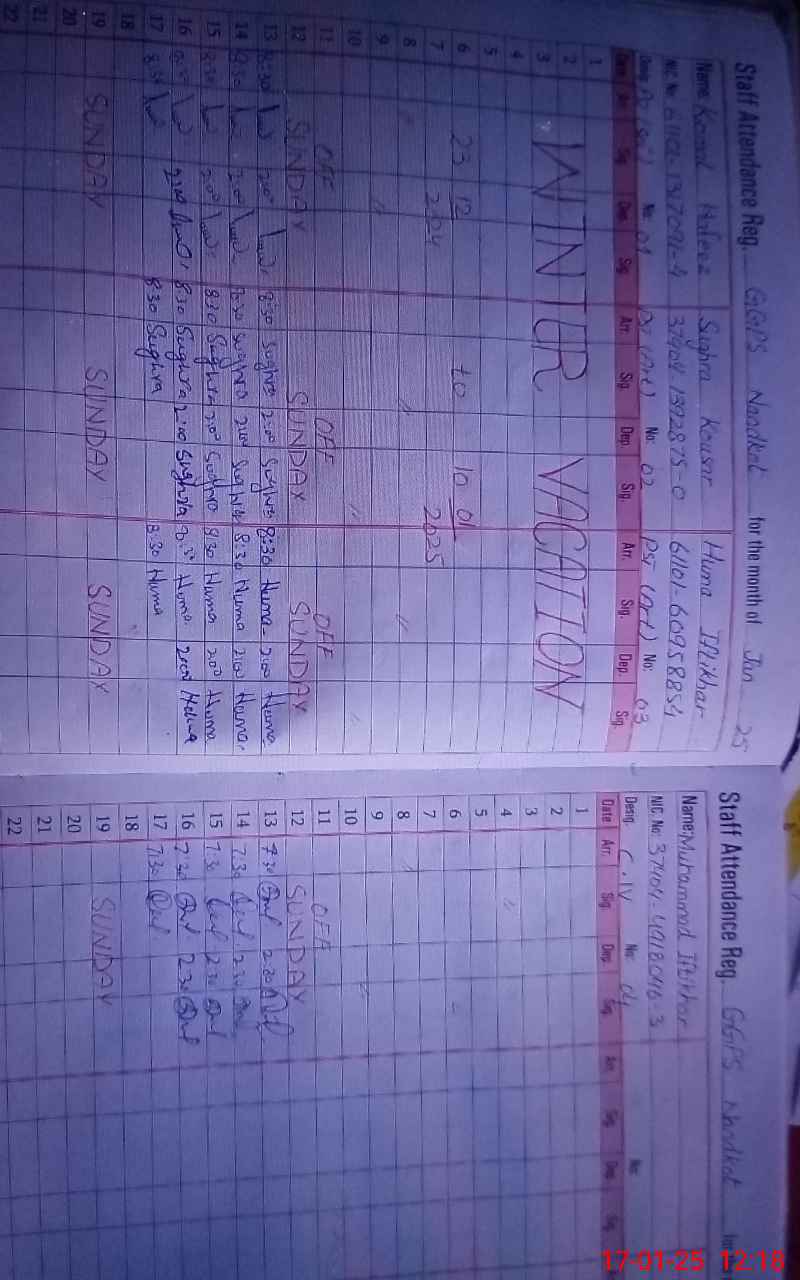 Staff Attendance Reg. GGPS Naadkot for the month of Jan 25
Name: Komal Hafeez Sughra Kousar Huma Iftikhar
NIC No: 37404 1392875-0 61101-6095885-4
Desig. No: 01 PST (Art) No: 02 PST (Art) No: 03
Date Arr. Sig. Dep. Sig. Arr. Sig. Dep. Sig. Arr. Sig. Dep. Sig.
1
2 WINTUR VACATION
3
4
5
6 23 12 to 10 01
7 2024 2025
8
9
10
11 OFF OFF OFF
12 SUNDAY SUNDAY SUNDAY
13 8:30 2:00 8:30 Sughra 2:00 Sughra 8:30 Huma 2:00 Huma
14 8:30 2:00 8:30 Sughra 2:00 Sughra 8:30 Huma 2:00 Huma
15 8:30 2:00 8:30 Sughra 2:00 Sughra 8:30 Huma 2:00 Huma
16 8:30 2:00 8:30 Sughra 2:00 Sughra 8:30 Huma 2:00 Huma
17 8:30 8:30 Sughra 8:30 Huma
18
19 SUNDAY SUNDAY SUNDAY
20
21
22
Staff Attendance Reg. GGPS Naadkot
Name: Muhammad Iftikhar
NIC No: 37404-4018046-3
Desig. C.IV No: 04 No:
Date Arr. Sig. Dep. Sig. Arr. Sig. Dep. Sig.
1
2
3
4
5
6
7
8
9
10
11 OFF
12 SUNDAY
13 7:30 2:30
14 7:30 2:30
15 7:30 2:30
16 7:30 2:30
17 7:30
18
19 SUNDAY
20
21
22
17-01-25 12:18